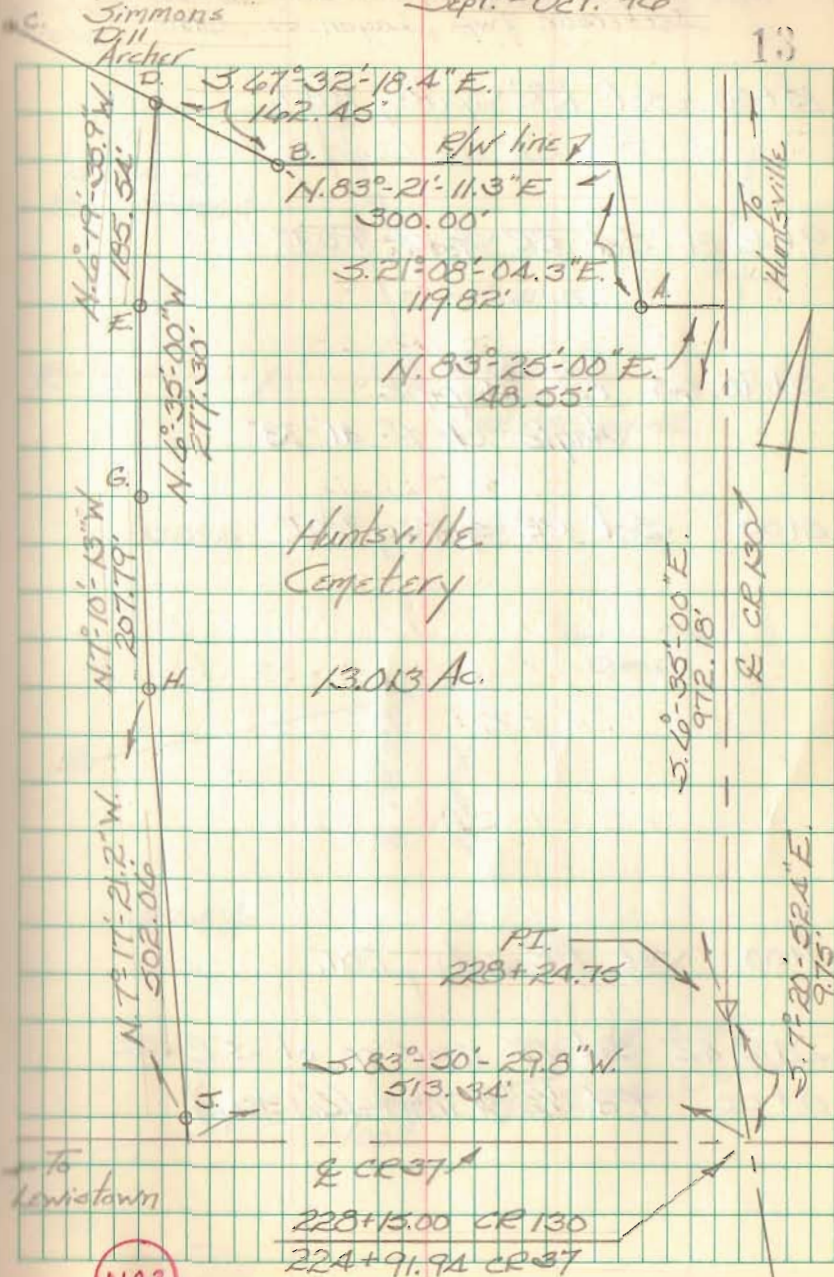 Sept. - Oct. 76
13
C.
Simmons
Dill
Archer
D.
S.67°-32'-18.4"E.
162.45'
B.
R/W line
N.83°-21'-11.3"E
300.00'
S.21°-08'-04.3"E.
119.82'
A.
N.83°-25'-00"E.
48.55'
To
Huntsville
N.6°-19'-35.9"W.
185.54'
E.
N.6°-35'-00"W
277.30'
G.
N.7°-10'-13"W
207.79'
H.
Huntsville
Cemetery
13.013 Ac.
S.6°-35'-00"E.
972.18'
℄ CR 130
N.7°-17'-21.2"W.
502.06
P.I.
228+24.75
S.7°-20'-52.4"E.
9.75'
S.83°-50'-29.8"W.
513.34'
J.
To
Lewistown
℄ CR 37
228+15.00 CR 130
224+91.94 CR 37